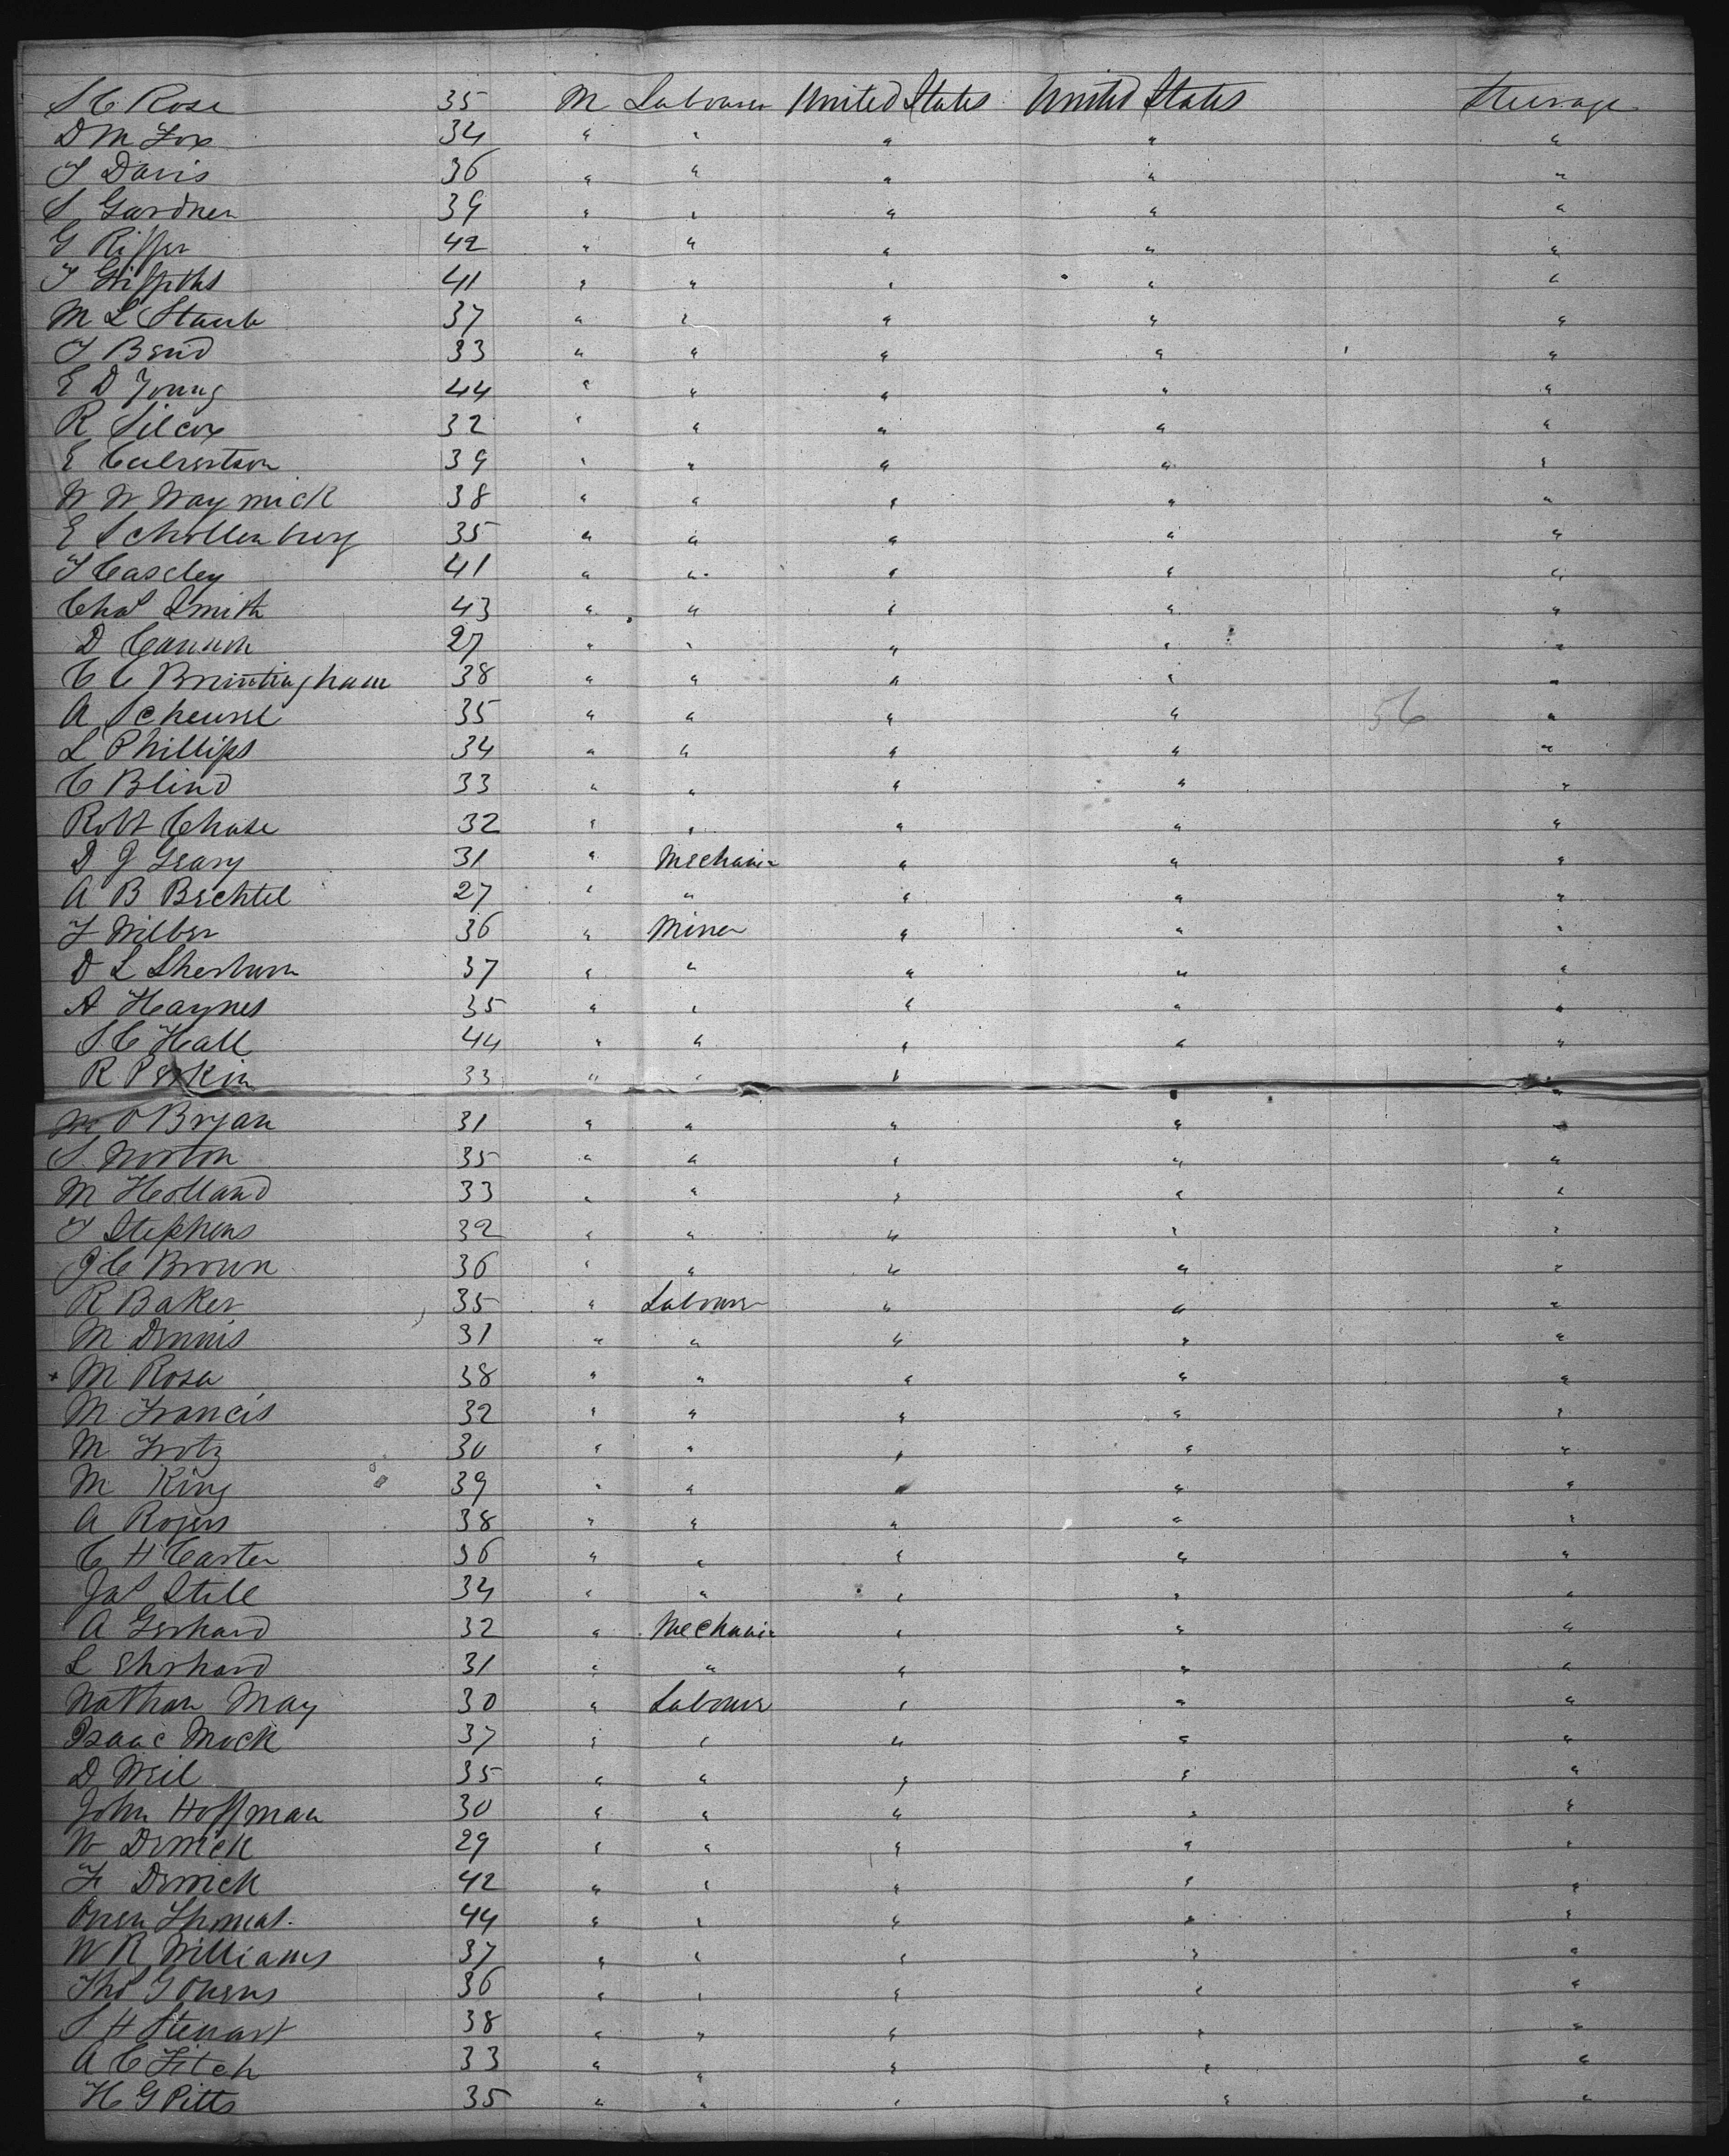 S C Rose 35 M Labourer United States United States Steerage
D M Fox 34 " " " " "
T Davis 36 " " " " "
S Gardner 39 " " " " "
G Riffer 42 " " " " "
T Griffiths 41 " " " " "
M L Staub 37 " " " " "
T Bend 33 " " " " "
E D Young 44 " " " " "
R Silcox 32 " " " " "
E Culbertson 39 " " " " "
W W Waymick 38 " " " " "
E Schollenberg 35 " " " " "
T Cascley 41 " " " " "
Chas Smith 43 " " " " "
D Cannon 27 " " " " "
C C Bruntingham 38 " " " " "
A 35 " " " " 56 "
L Phillips 34 " " " " "
C Blind 33 " " " " "
Robt Chase 32 " " " " "
D J Geary 31 " Mechanic " " "
A B Bechtel 27 " " " " "
F Wilber 36 " Miner " " "
D L Sherburn 37 " " " " "
A Haynes 35 " " " " "
S C Hall 44 " " " " "
R Perkin 33 " " " " "
M O Bryan 31 " " " " "
S Norton 35 " " " " "
M Holland 33 " " " " "
T Stephens 32 " " " " "
J C Brown 36 " " " " "
R Baker 35 " Labourer " " "
M Dennis 31 " " " " "
+ M Rosa 38 " " " " "
M Francis 32 " " " " "
M Frotz 30 " " " " "
M King 39 " " " " "
A Rogers 38 " " " " "
C H Carter 36 " " " " "
Jas Still 34 " " " " "
A Gerhard 32 " Mechanic " " "
L Ehrhard 31 " " " " "
Nathan May 30 " Labourer " " "
Isaac Mock 37 " " " " "
D Weil 35 " " " " "
John Hoffman 30 " " " " "
W Derrick 29 " " " " "
F Derrick 42 " " " " "
Owen Thomas 44 " " " " "
W R Williams 37 " " " " "
Thos G Owens 36 " " " " "
S H Stewart 38 " " " " "
A C Fitch 33 " " " " "
H G Pitts 35 " " " " "